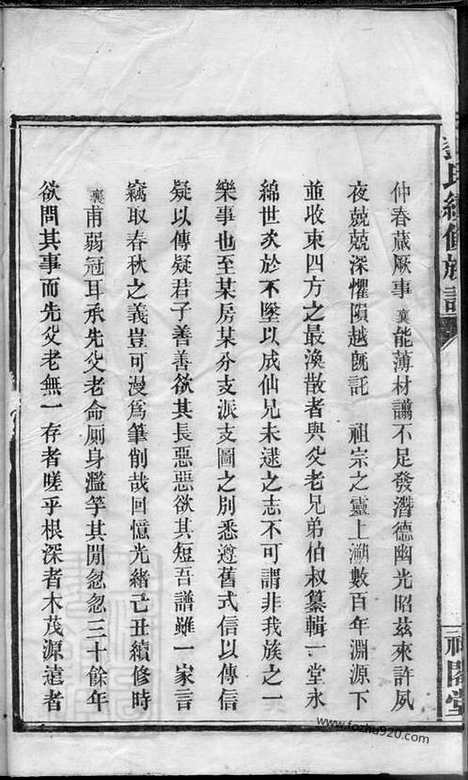 氏續修族譜
祠閣堂
仲春蕆厥事襄能薄材譾不足發潛德幽光昭茲來許夙
夜兢兢深懼隕越旣託 祖宗之靈上溯數百年淵源下
並收東四方之最渙散者與父老兄弟伯叔纂輯一堂永
綿世次於不墜以成仙兄未逮之志不可謂非我族之一
樂事也至某房某分支派支圖之別悉遵舊式信以傳信
疑以傳疑君子善善欲其長惡惡欲其短吾譜雖一家言
竊取春秋之義豈可漫爲筆削哉回憶光緒己丑續修時
襄甫弱冠耳承先父老命厠身濫竽其閒忽忽三十餘年
欲問其事而先父老無一存者嗟乎根深者木茂源遠者
www.fozhu920.com